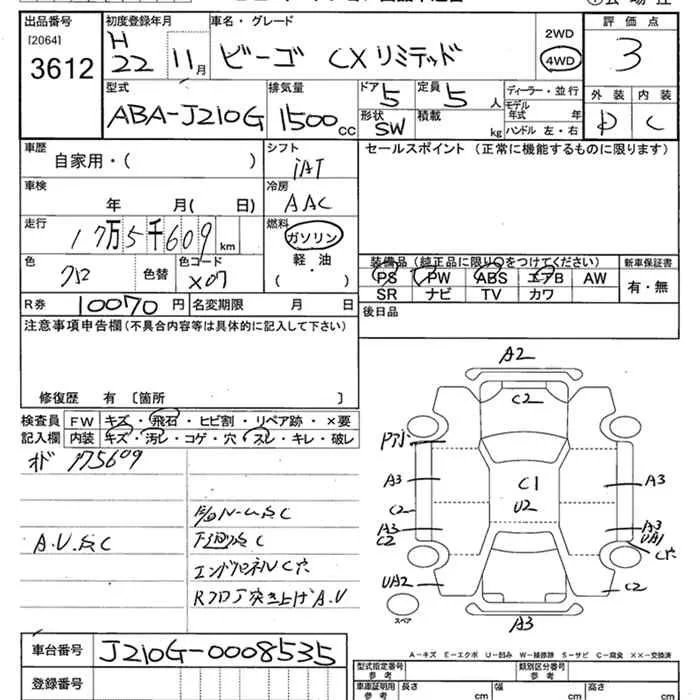 出品番号
[2064]
3612
初度登録年月
H
22 11月
車名・グレード
ビーゴ CXリミテッド
2WD
4WD
評価点
3
型式
ABA-J210G
排気量
1500cc
ドア
5
定員
5人
形状
SW
積載
kg
ディーラー・並行
モデル
年式 年
ハンドル 左・右
外装 内装
D C
車歴
自家用・( )
シフト
iAT
セールスポイント (正常に機能するものに限ります)
車検
年 月( 日)
冷房
AAC
走行
17万5千609km
燃料
ガソリン
軽・油
( )
色
クロ
色替
色コード
X07
装備品(純正品に限り○をつけてください)
PS PW ABS エアB AW
SR ナビ TV カワ
新車保証書
有・無
R券 10070円
名変期限 月 日
後日品
注意事項申告欄(不具合内容等は具体的に記入して下さい)
修復歴 有 〔箇所 〕
検査員
記入欄
FW キズ・飛石・ヒビ割・リペア跡・×要
内装 キズ・汚レ・コゲ・穴・スレ・キレ・破レ
175609
A.U.
エンドパネルC穴
Rフロア突き上げA.U
A2
C2
A3
C2
A3
C2
UA2
C1
U2
A3
A3
UA1
C穴
C2
A3
スペア
A-キズ E-エクボ U-凹み W-補修跡 S-サビ C-腐食 ××-交換済
車台番号
J210G-0008535
登録番号
型式指定番号
参考
類別区分番号
参考
車庫証明用
参考
長さ cm
幅 cm
高さ cm